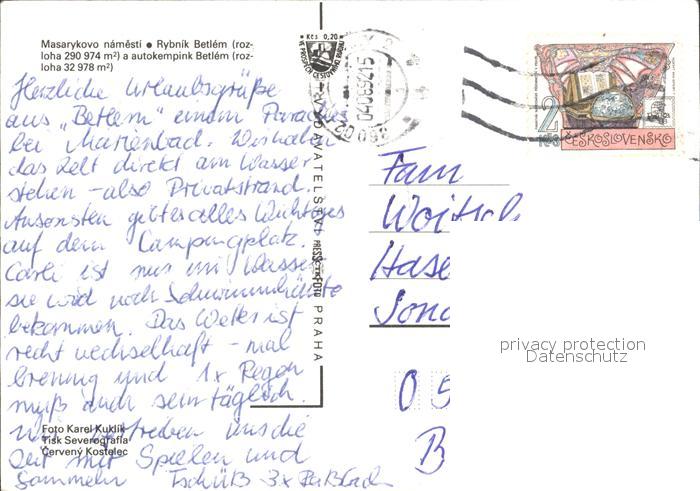 Masarykovo náměstí ● Rybník Betlém (roz-
loha 290 974 m²) a autokempink Betlém (roz-
loha 32 978 m²)
Herzliche Urlaubsgrüße
aus „Betlem" einem Paradies
bei Marienbad. Wir haben
das Zelt direkt am Wasser
stehen - also Privatstrand.
Ansonsten gibt es alles Wichtiges
auf dem Campingplatz.
ist nur im Wasser
sie wird noch Schwimmhäute
bekommen. Das Wetter ist
recht wechselhaft - mal
brennig und 1x Regen
muß auch sein täglich.
Wir vertreiben uns die
Zeit mit Spielen und
Sammeln Tschüß 3x
Foto Karel Kuklík
Tisk Severografia
Červený Kostelec
Kčs 0,20
VYDAVATELSTVÍ PRESSFOTO PRAHA
2
ČESKOSLOVENSKO
Fam
Hase
Sonn
0 5
B
privacy protection
Datenschutz